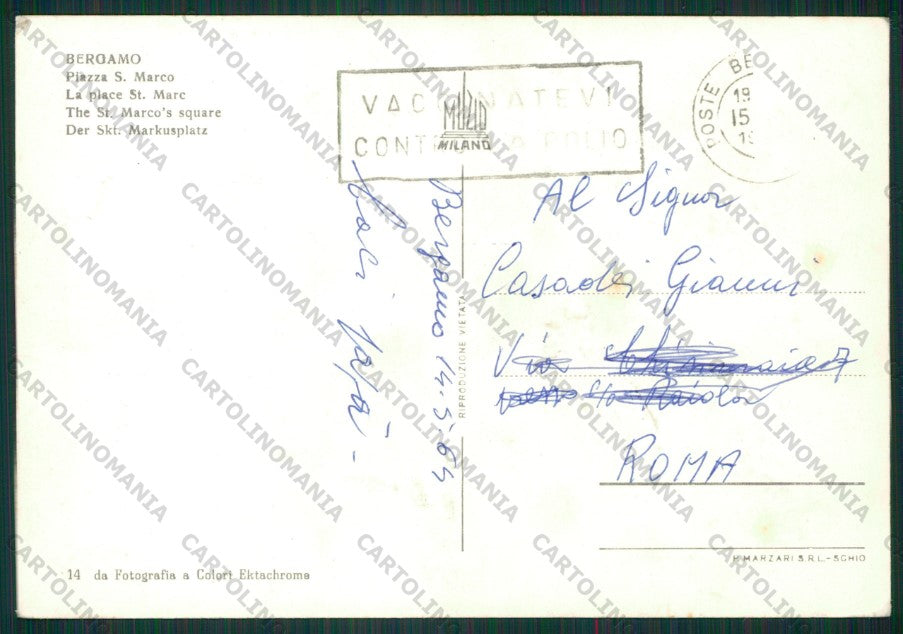 BERGAMO
Piazza S. Marco
La place St. Marc
The St. Marco's square
Der Skt. Markusplatz
VACCINATEVI
CONTRO LA POLIO
MILANO
POSTE BE
19
15
Bergamo 14.5.64
Baci papà -
RIPRODUZIONE VIETATA
Al Signor
Casadei Gianni
Via
ROMA
P. MARZARI S.R.L.-SCHIO
14 da Fotografia a Colori Ektachrome
CARTOLINOMANIA